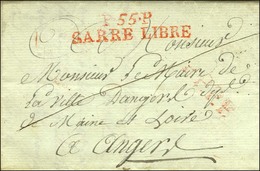 P.55.P
SARRE LIBRE
Monsieur
Monsieur le Maire de
la ville Dangers
de Maine et Loire
a Angers